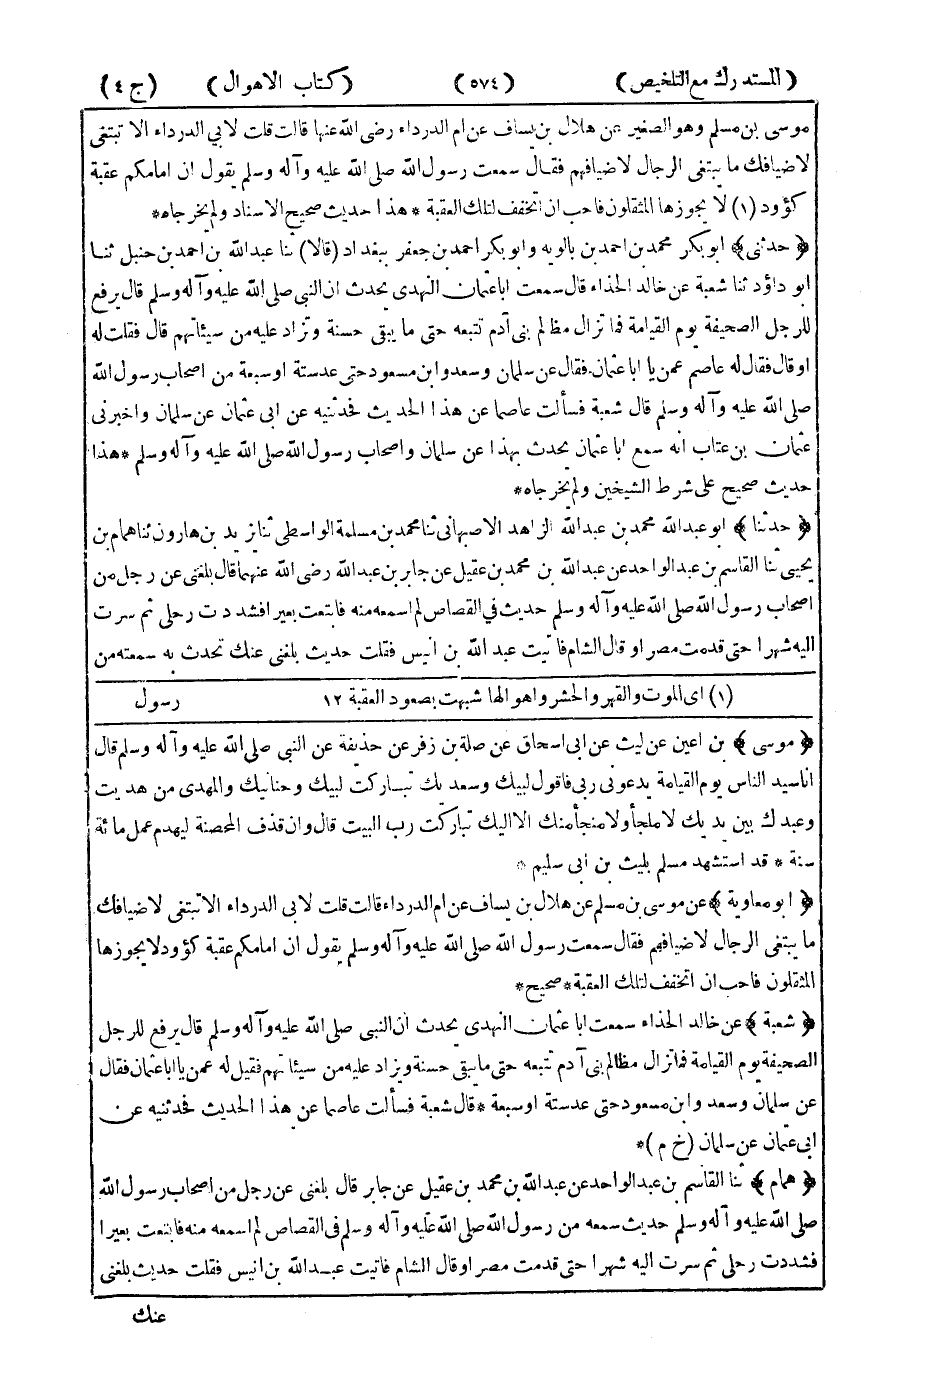 (المستدرك مع التلخيص) (٥٧٤) (كتاب الاهوال) (ج ٤)
موسى بن مسلم وهو الصغير عن هلال بن يساف عن ام الدرداء رضى الله عنها قالت قلت لابي الدرداء الا تبتغى
لاضيافك ما يبتغى الرجال لاضيافهم فقال سمعت رسول الله صلى الله عليه وآله وسلم يقول ان امامكم عقبة
كؤود (١) لا يجوزها المثقلون فاحب ان اتخفف لتلك العقبة * هذا حديث صحيح الاسناد ولم يخرجاه*
﴿ حدثنى ﴾ ابو بكر محمد بن احمد بن بالويه وابو بكر احمد بن جعفر ببغداد (قالا) ثنا عبدالله بن احمد بن حنبل ثنا
ابو داؤد ثنا شعبة عن خالد الحذاء قال سمعت اباعثمان النهدى يحدث ان النبي صلى الله عليه وآله وسلم قال يرفع
للرجل الصحيفة يوم القيامة فما تزال مظالم بنى آدم تتبعه حتى ما يبقى حسنة وتزاد عليه من سيئاتهم قال فقلت له
او قال فقال له عاصم عمن يا اباعثمان فقال عن سلمان وسعد وابن مسعود حتى عد ستة او سبعة من اصحاب رسول الله
صلى الله عليه وآله وسلم قال شعبة فسألت عاصما عن هذا الحديث فحدثنيه عن ابى عثمان عن سلمان واخبرنى
عثمان بن عتاب انه سمع اباعثمان يحدث بهذا عن سلمان واصحاب رسول الله صلى الله عليه وآله وسلم *هذا
حديث صحيح على شرط الشيخين ولم يخرجاه*
﴿ حدثنا ﴾ ابو عبدالله محمد بن عبدالله الزاهد الاصبهانى ثنا محمد بن مسلمة الواسطى ثنا يزيد بن هارون ثنا همام بن
يحيى ثنا القاسم بن عبد الواحد عن عبدالله بن محمد بن عقيل عن جابر بن عبدالله رضى الله عنهما قال بلغنى عن رجل من
اصحاب رسول الله صلى الله عليه وآله وسلم حديث في القصاص لم اسمعه منه فابتعت بعيرا فشددت رحلى ثم سرت
اليه شهرا حتى قدمت مصر او قال الشام فاتيت عبد الله بن انيس فقلت حديث بلغنى عنك تحدث به سمعته من
(١) اى الموت والقبر والحشر واهوالها شبهت بصعود العقبة ١٢ رسول
﴿ موسى ﴾ بن اعين عن ليث عن ابى اسحاق عن صلة بن زفر عن حذيفة عن النبي صلى الله عليه وآله وسلم قال
اناسيد الناس يوم القيامة يدعونى ربى فاقول لبيك وسعديك تباركت لبيك وحنانيك والمهدى من هديت
وعبدك بين يديك لا ملجأ ولا منجأ منك الا اليك تباركت رب البيت قال وان قذف المحصنة ليهدم عمل مائة
سنة * قد استشهد مسلم بليث بن ابى سليم *
﴿ ابو معاوية ﴾ عن موسى بن مسلم عن هلال بن يساف عن ام الدرداء قالت قلت لابى الدرداء الا تبتغى لاضيافك
ما يبتغى الرجال لاضيافهم فقال سمعت رسول الله صلى الله عليه وآله وسلم يقول ان امامكم عقبة كؤود لا يجوزها
المثقلون فاحب ان اتخفف لتلك العقبة*صحيح*
﴿ شعبة ﴾ عن خالد الحذاء سمعت ابا عثمان النهدى يحدث ان النبي صلى الله عليه وآله وسلم قال يرفع للرجل
الصحيفة يوم القيامة فما تزال مظالم بنى آدم تتبعه حتى ما يبقى حسنة ويزاد عليه من سيئاتهم فقيل له عمن يا اباعثمان فقال
عن سلمان وسعد وابن مسعود حتى عد ستة او سبعة *قال شعبة فسألت عاصما عن هذا الحديث فحدثنيه عن
ابى عثمان عن سلمان (خ م)*
﴿ همام ﴾ ثنا القاسم بن عبد الواحد عن عبدالله بن محمد بن عقيل عن جابر قال بلغنى عن رجل من اصحاب رسول الله
صلى الله عليه وآله وسلم حديث سمعه من رسول الله صلى الله عليه وآله وسلم فى القصاص لم اسمعه منه فابتعت بعيرا
فشددت رحلى ثم سرت اليه شهرا حتى قدمت مصر او قال الشام فاتيت عبدالله بن انيس فقلت حديث بلغنى
عنك